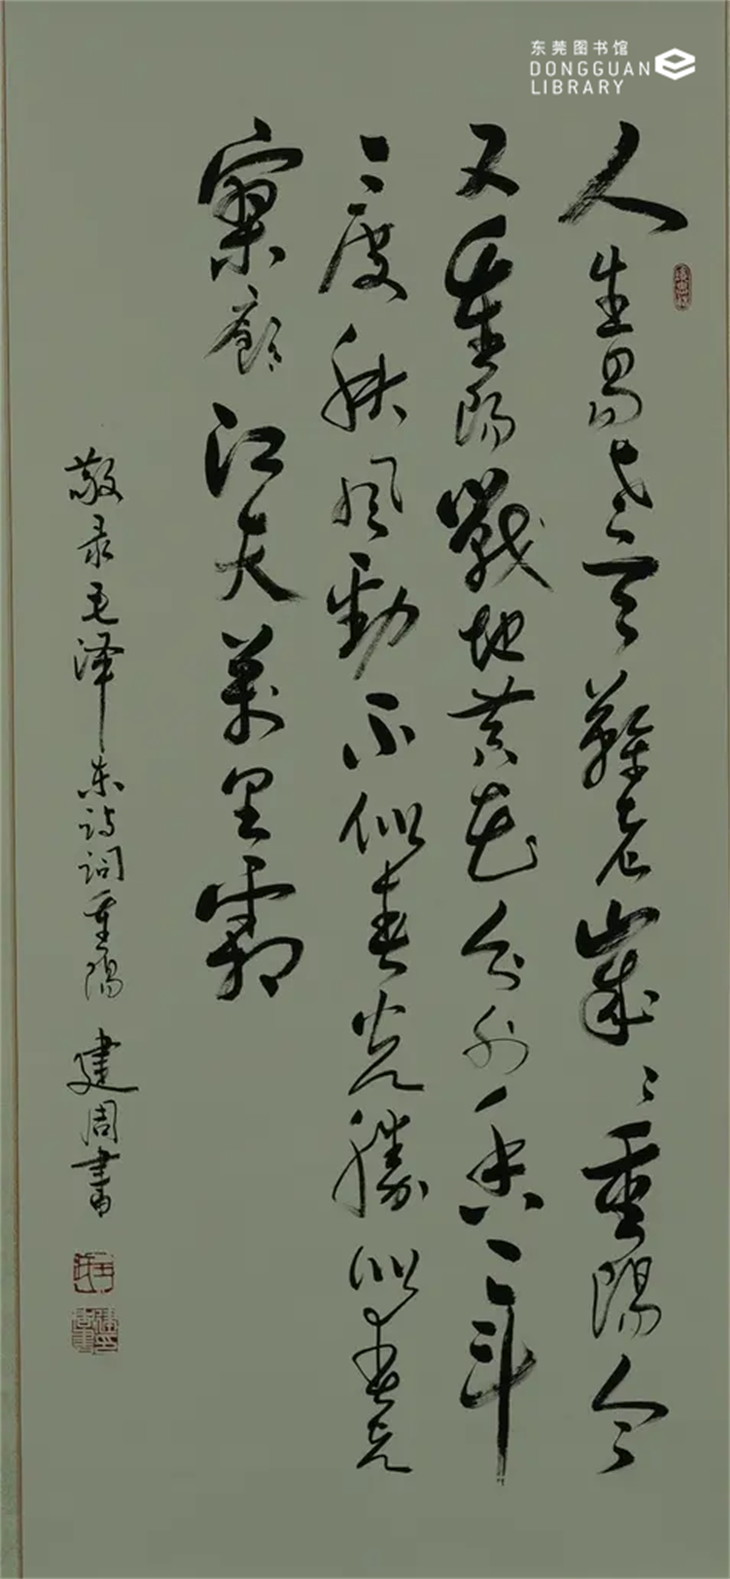 东莞图书馆
DONGGUAN
LIBRARY
人生易老天難老歲〻重陽今
又重陽戰地黄花分外香一年
一度秋風勁不似春光勝似春光
寥廓江天萬里霜
敬录毛泽东诗词重陽 建周書